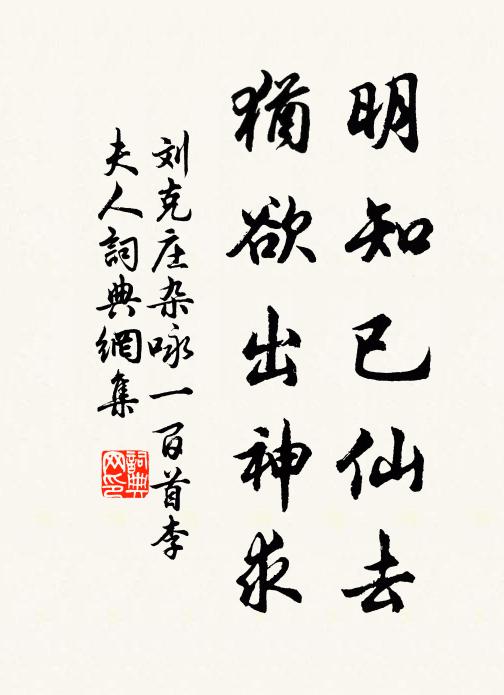 明知已仙去
猶欲出神求
刘克庄杂咏一百首李
夫人詞典網集
詞典网印